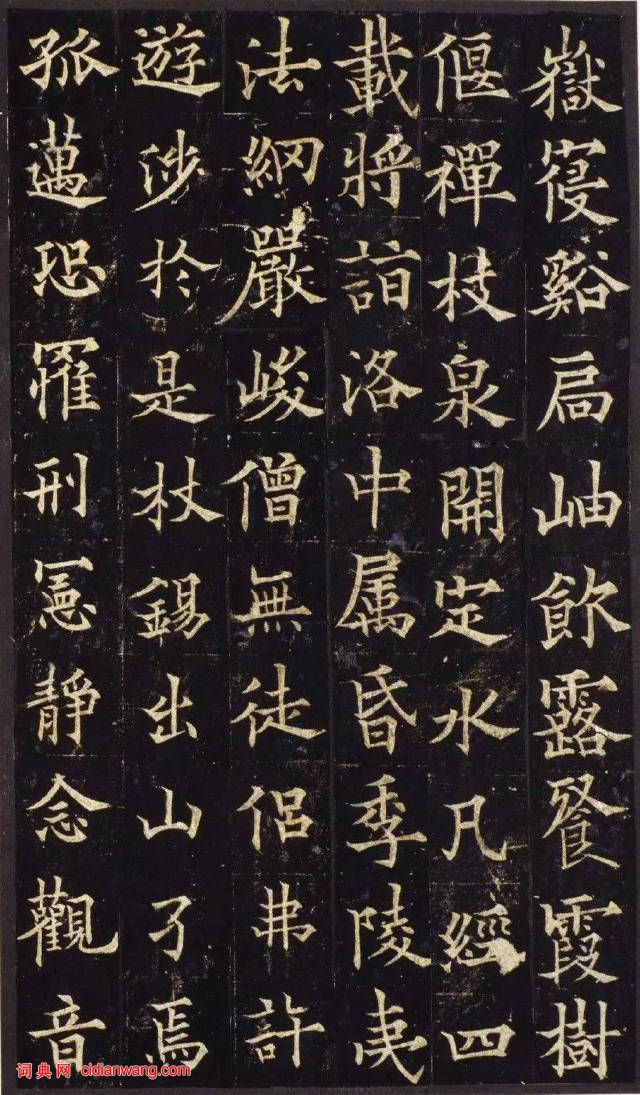 嶽寑谿扃岫飲露餐霞樹
偃禪枝泉開定水凡經四
載將詣洛中属昏季陵夷
法網嚴峻僧無徒侶弗許
遊涉於是杖錫出山孑焉
孤邁恐罹刑憲靜念觀音
词典网 cidianwang.com